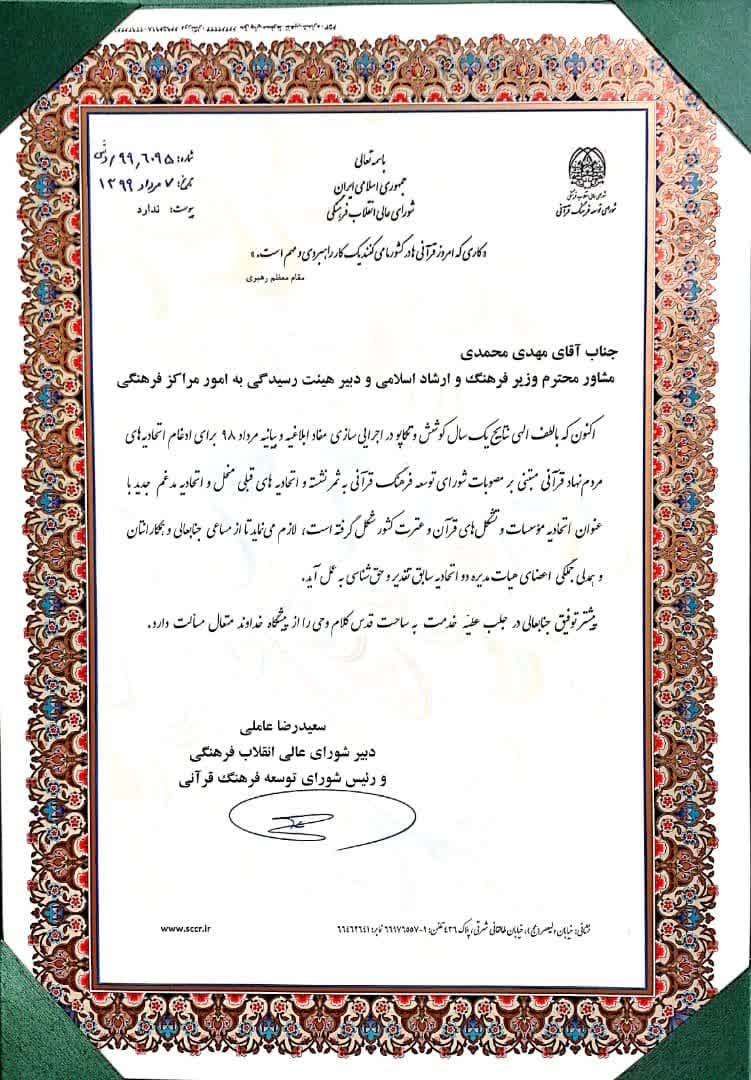 باسمه تعالی
جمهوری اسلامی ایران
شورای عالی انقلاب فرهنگی
شورای عالی انقلاب فرهنگی
شورای توسعه فرهنگ قرآنی
شماره: ۹۹٫۶۰۹۵/دش
تاریخ: ۷ مرداد ۱۳۹۹
پیوست: ندارد
«کاری که امروز قرآنی ها در کشور ما می کنند یک کار راهبردی و مهم است.»
مقام معظم رهبری
جناب آقای مهدی محمدی
مشاور محترم وزیر فرهنگ و ارشاد اسلامی و دبیر هیئت رسیدگی به امور مراکز فرهنگی
اکنون که با لطف الهی نتایج یک سال کوشش و تکاپو در اجرایی سازی مفاد ابلاغیه و بیانیه مرداد ۹۸ برای ادغام اتحادیه های
مردم نهاد قرآنی مبتنی بر مصوبات شورای توسعه فرهنگ قرآنی به ثمر نشسته و اتحادیه های قبلی منحل و اتحادیه مدغم جدید با
عنوان اتحادیه مؤسسات و تشکل های قرآن و عترت کشور شکل گرفته است، لازم می نماید تا از مساعی جنابعالی و همکارانتان
و همدلی جملگی اعضای هیات مدیره دو اتحادیه سابق تقدیر و حق شناسی به عمل آید.
بیشتر توفیق جنابعالی در جلب عطیه خدمت به ساحت قدس کلام وحی را از پیشگاه خداوند متعال مسألت دارد.
سعیدرضا عاملی
دبیر شورای عالی انقلاب فرهنگی
و رئیس شورای توسعه فرهنگ قرآنی
نشانی: خیابان ولیعصر (عج)، خیابان طالقانی شرقی، پلاک ۴۳۶ تلفن: ۱-۶۶۹۷۶۵۵۷ نمابر: ۶۶۴۶۲۶۴۱
www.sccr.ir